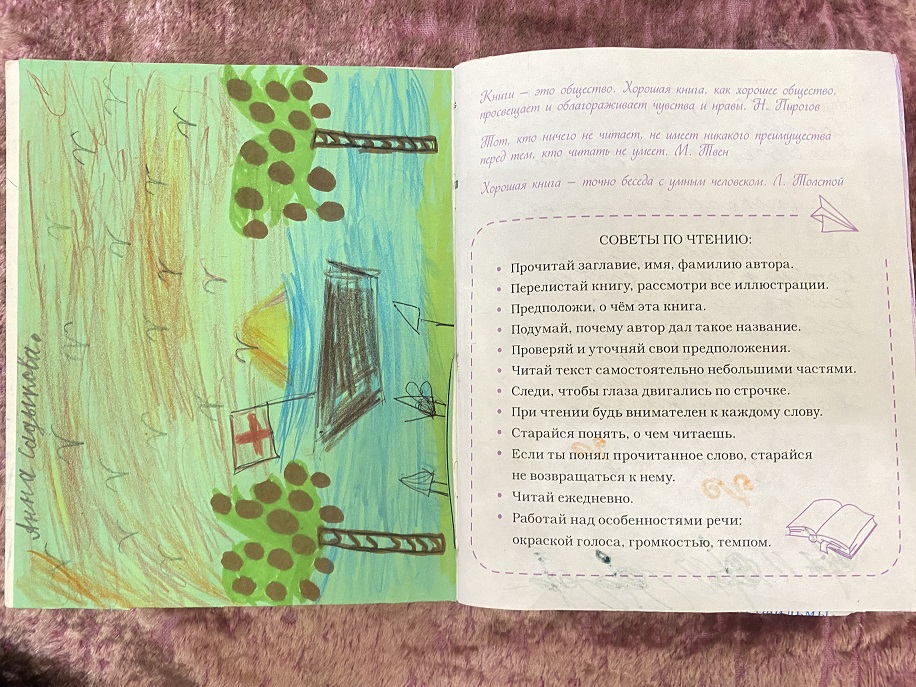 Анна Садырова.
Книги — это общество. Хорошая книга, как хорошее общество,
просвещает и облагораживает чувства и нравы. Н. Пирогов
Тот, кто ничего не читает, не имеет никакого преимущества
перед тем, кто читать не умеет. М. Твен
Хорошая книга — точно беседа с умным человеком. Л. Толстой
СОВЕТЫ ПО ЧТЕНИЮ:
• Прочитай заглавие, имя, фамилию автора.
• Перелистай книгу, рассмотри все иллюстрации.
• Предположи, о чём эта книга.
• Подумай, почему автор дал такое название.
• Проверяй и уточняй свои предположения.
• Читай текст самостоятельно небольшими частями.
• Следи, чтобы глаза двигались по строчке.
• При чтении будь внимателен к каждому слову.
• Старайся понять, о чем читаешь.
• Если ты понял прочитанное слово, старайся
не возвращаться к нему.
• Читай ежедневно.
• Работай над особенностями речи:
окраской голоса, громкостью, темпом.